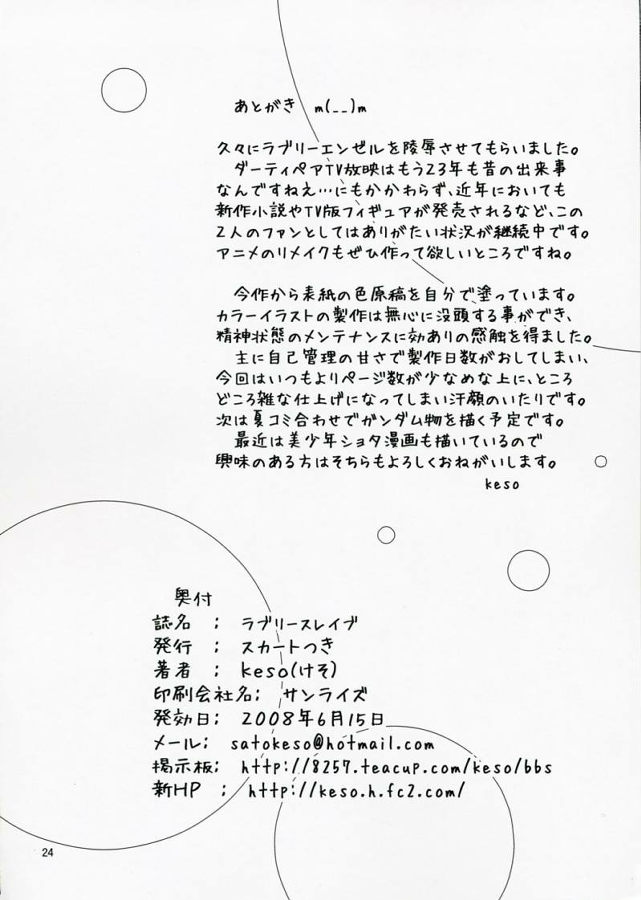 あとがき　m(__)m
久々にラブリーエンゼルを陵辱させてもらいました。
ダーティペアTV放映はもう23年も昔の出来事
なんですねえ…にもかかわらず、近年においても
新作小説やTV版フィギュアが発売されるなど、この
2人のファンとしてはありがたい状況が継続中です。
アニメのリメイクもぜひ作って欲しいところですね。
今作から表紙の色原稿を自分で塗っています。
カラーイラストの製作は無心に没頭する事ができ、
精神状態のメンテナンスに効ありの感触を得ました。
主に自己管理の甘さで製作日数がおしてしまい、
今回はいつもよりページ数が少なめな上に、ところ
どころ雑な仕上げになってしまい汗顔のいたりです。
次は夏コミ合わせでガンダム物を描く予定です。
最近は美少年ショタ漫画も描いているので
興味のある方はそちらもよろしくおねがいします。
keso
奥付
誌名　；　ラブリースレイブ
発行　；　スカートつき
著者　；　keso(けそ)
印刷会社名；　サンライズ
発効日；　2008年6月15日
メール；　satokeso@hotmail.com
掲示板；　http://8257.teacup.com/keso/bbs
新HP　；　http://keso.h.fc2.com/
24